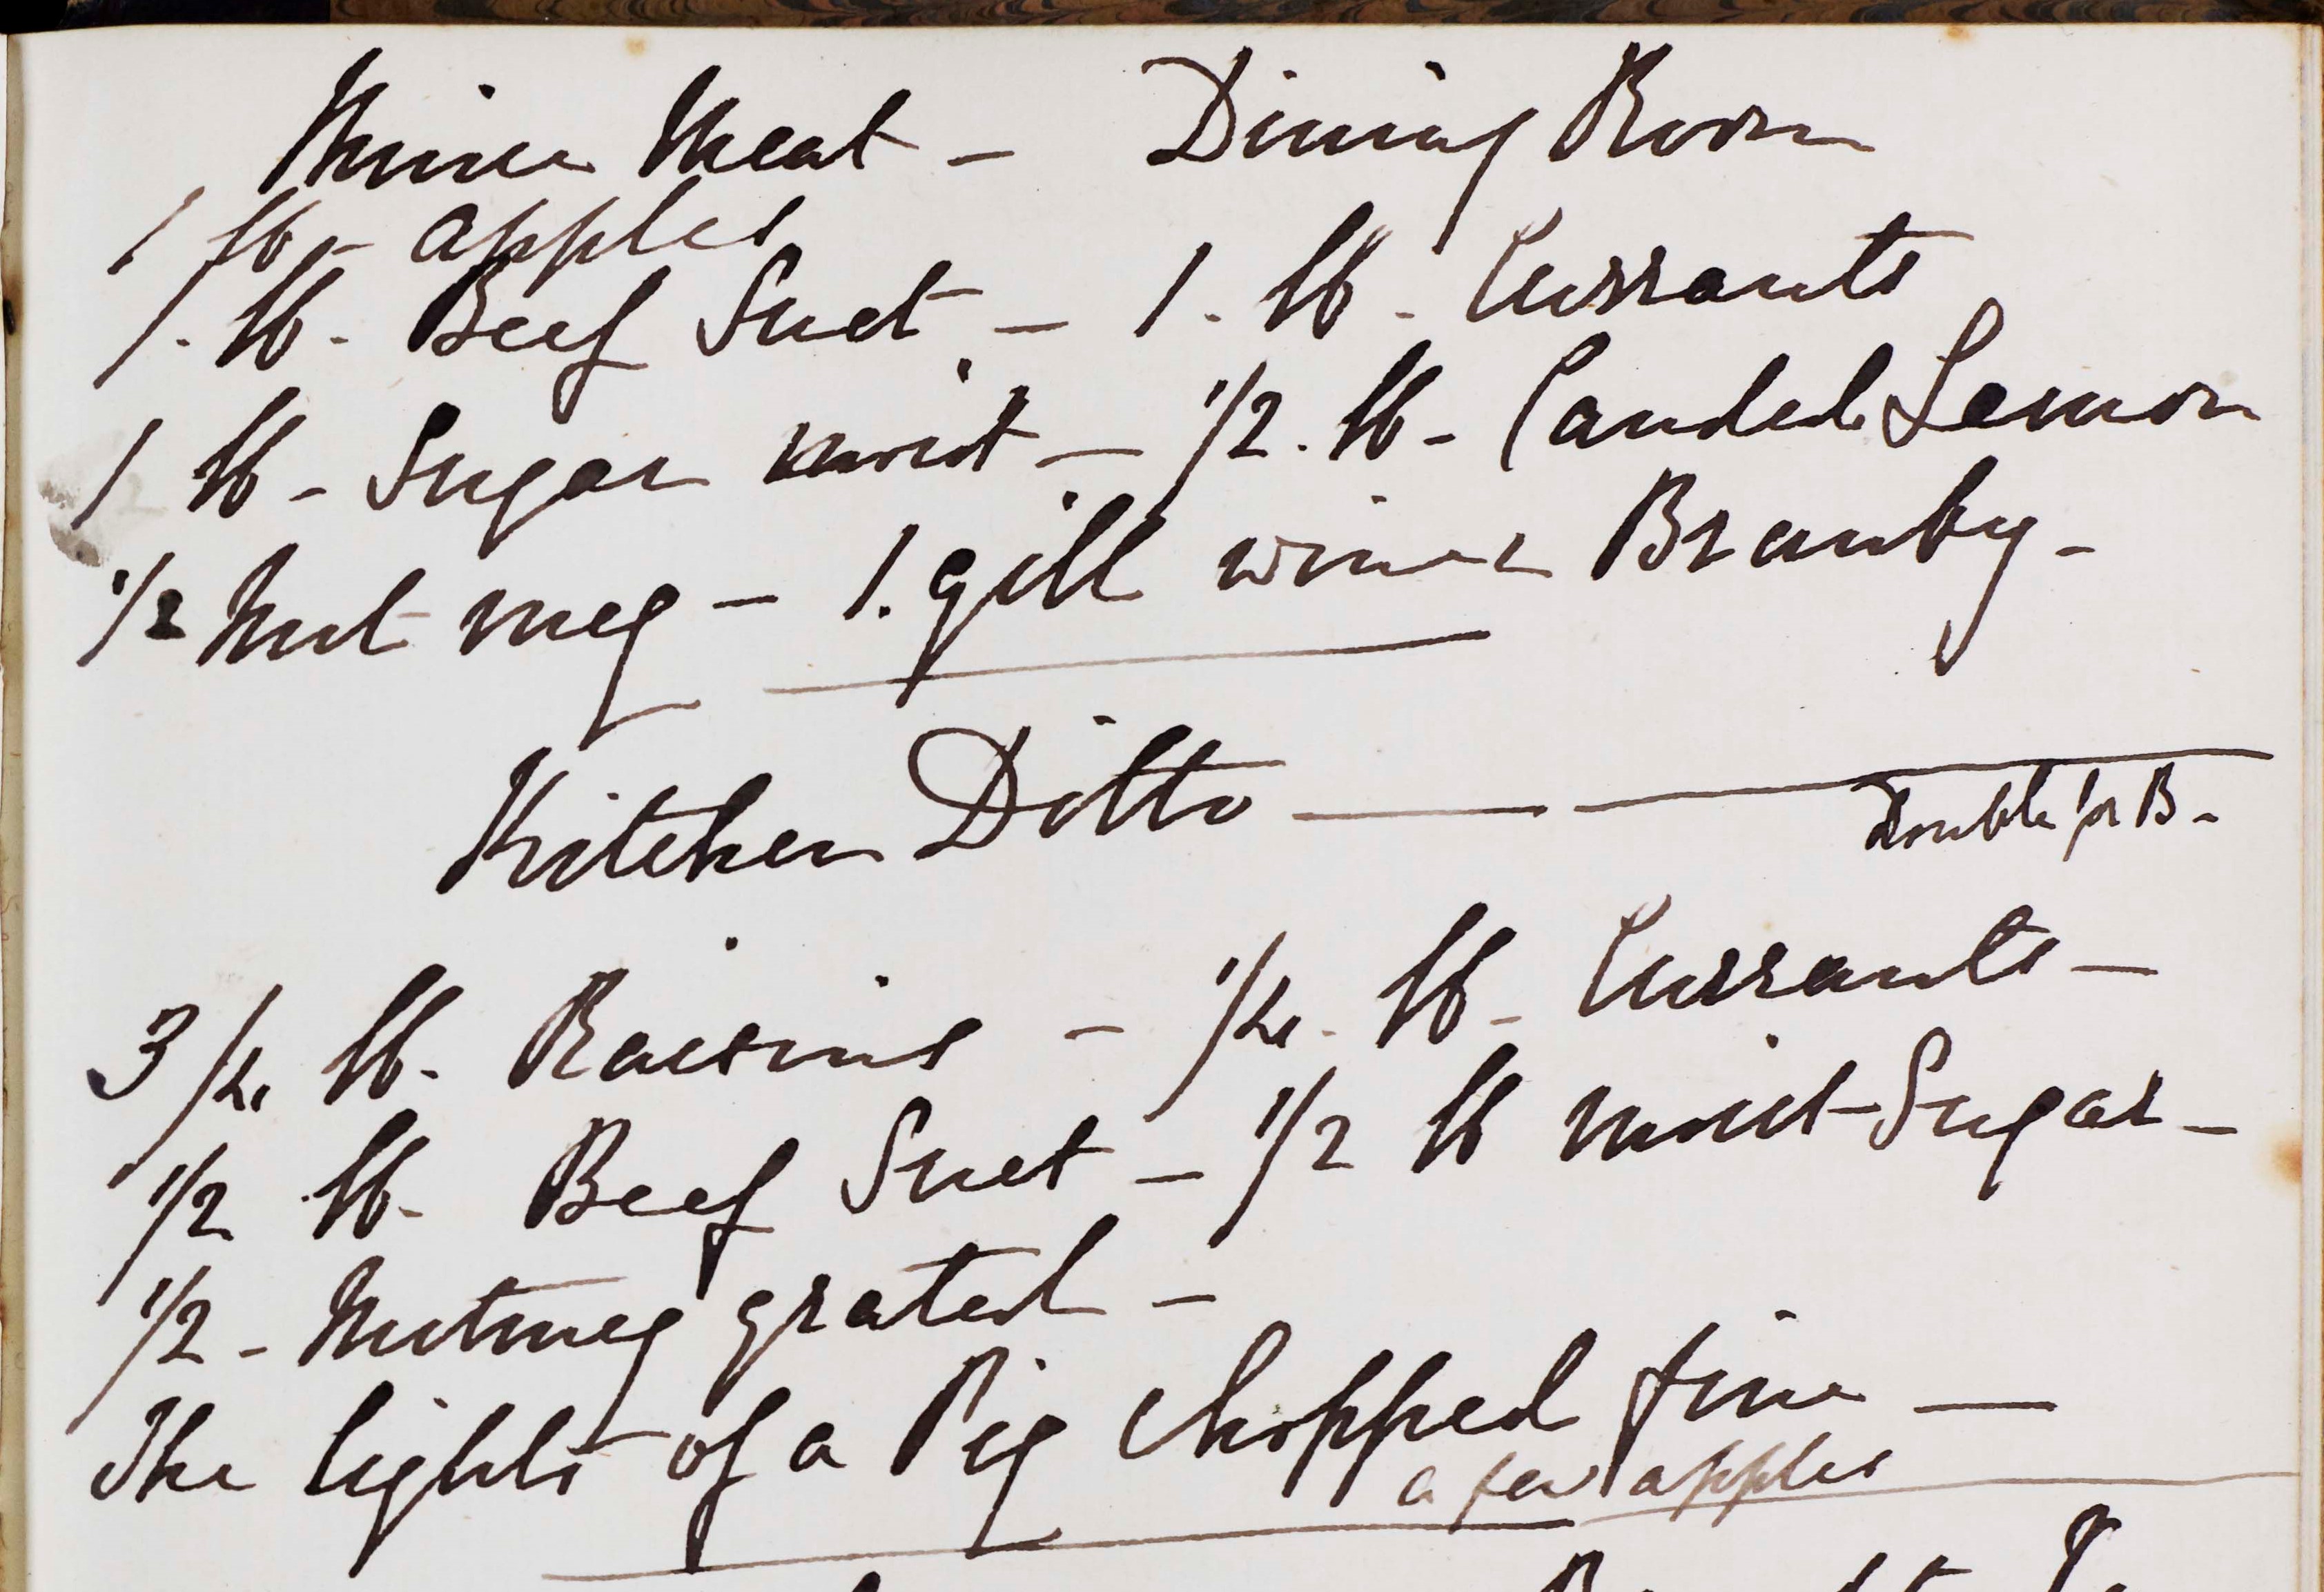 Mince Meat - Dining Room
1 lb - apples
1. lb - Beef Suet - 1. lb - Currants
1 lb - Sugar moist - 1/2. lb - Candied Lemon
1/2 Nut meg - 1. gill wine Brandy -
Kitchen Ditto
Double for B -
3/4 lb - Raisins - 1/4. lb - Currants -
1/2 lb - Beef Suet - 1/2 lb moist Sugar -
1/2 - Nutmeg grated -
The lights of a Pig Chopped fine -
a few apples